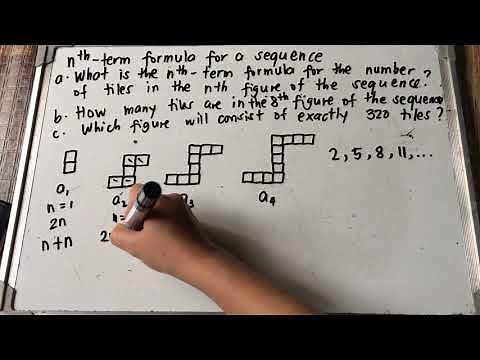 nth-term formula for a sequence
a. What is the nth-term formula for the number
of tiles in the nth figure of the sequence?
b. How many tiles are in the 8th figure of the sequence
c. Which figure will consist of exactly 320 tiles?
2, 5, 8, 11, ...
a1 a2 a3 a4
n=1
2n
n+n